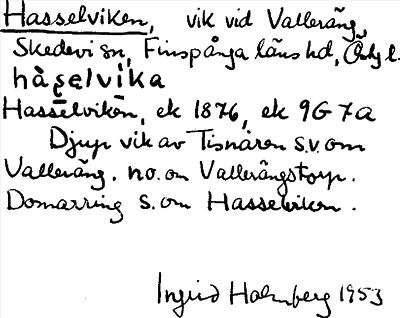 Hasselviken, vik vid Valleräng,
Skedevi sn, Finspånga läns hd, Östg l.
hàşelvika
Hasselviken, ek 1876, ek 9G 7a
Djup vik av Tisnaren s.v. om
Valleräng. no. om Vallerängstorp.
Domarring s. om Hasselviken.
Ingrid Holmberg 1953